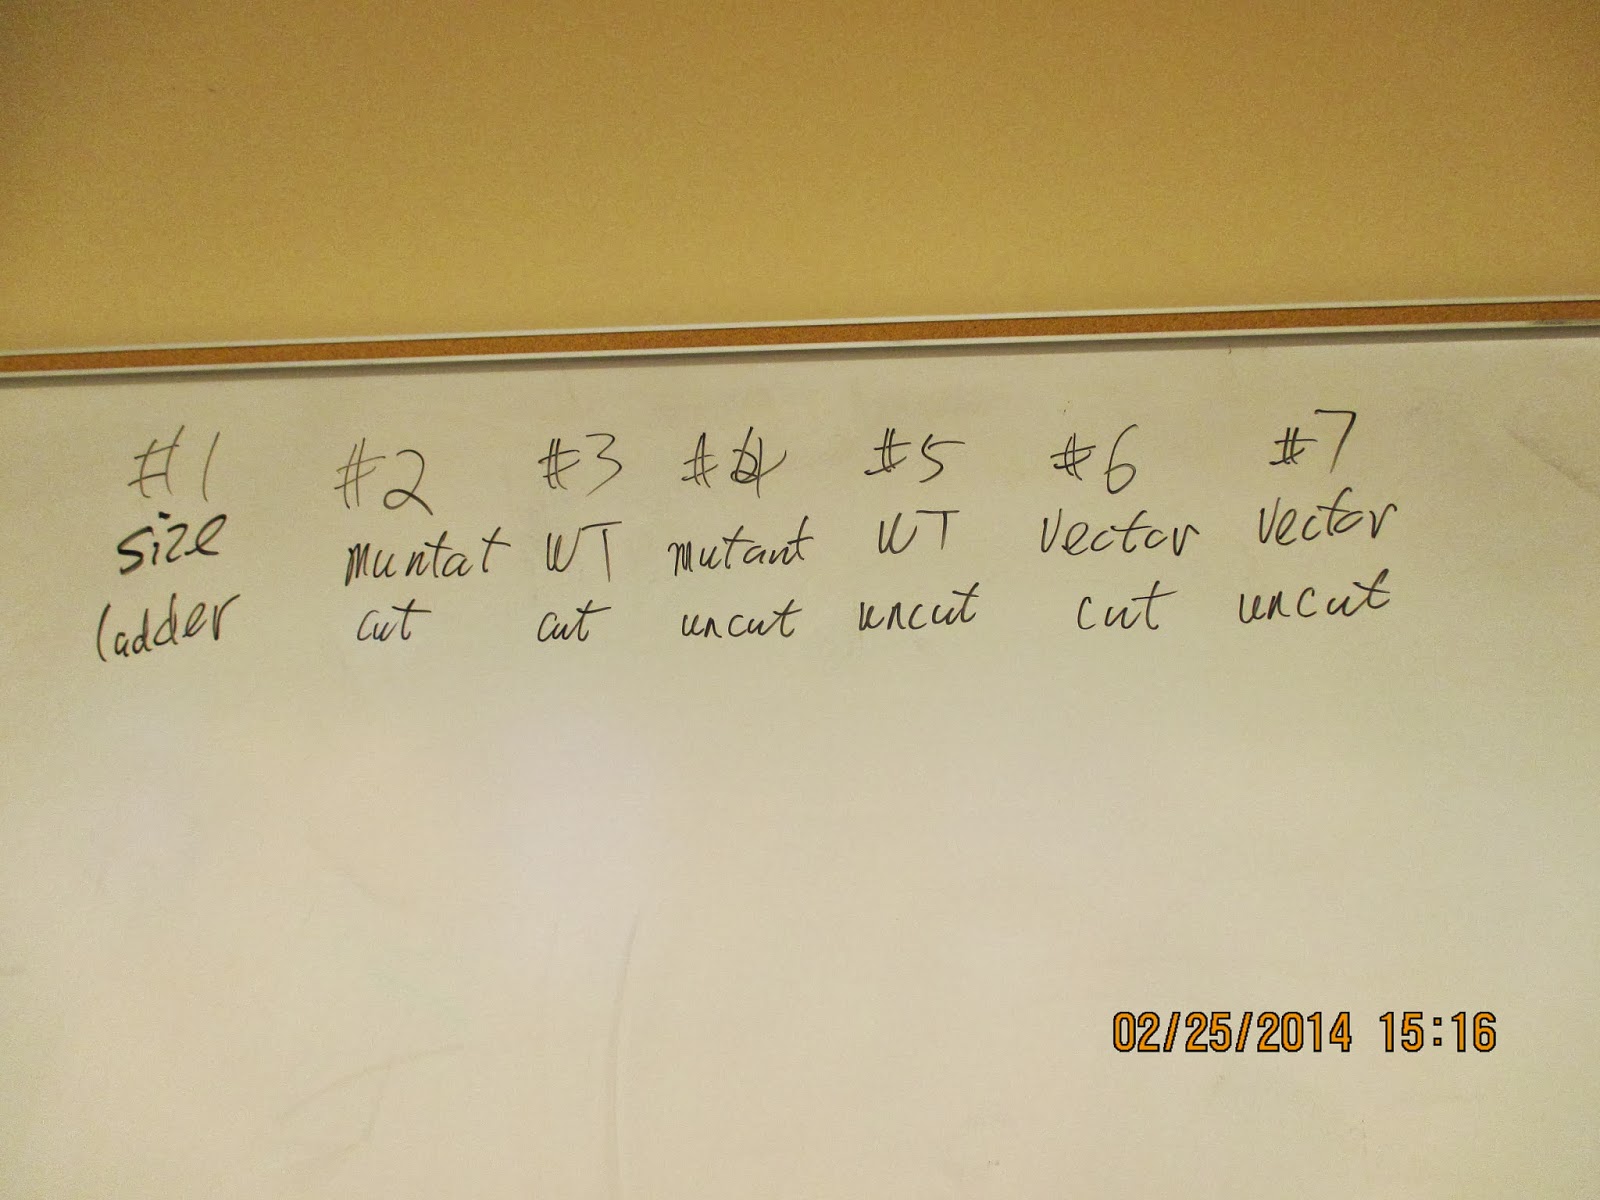 #1 #2 #3 #4 #5 #6 #7
size muntat WT mutant WT vector vector
ladder cut cut uncut uncut cut uncut
02/25/2014 15:16